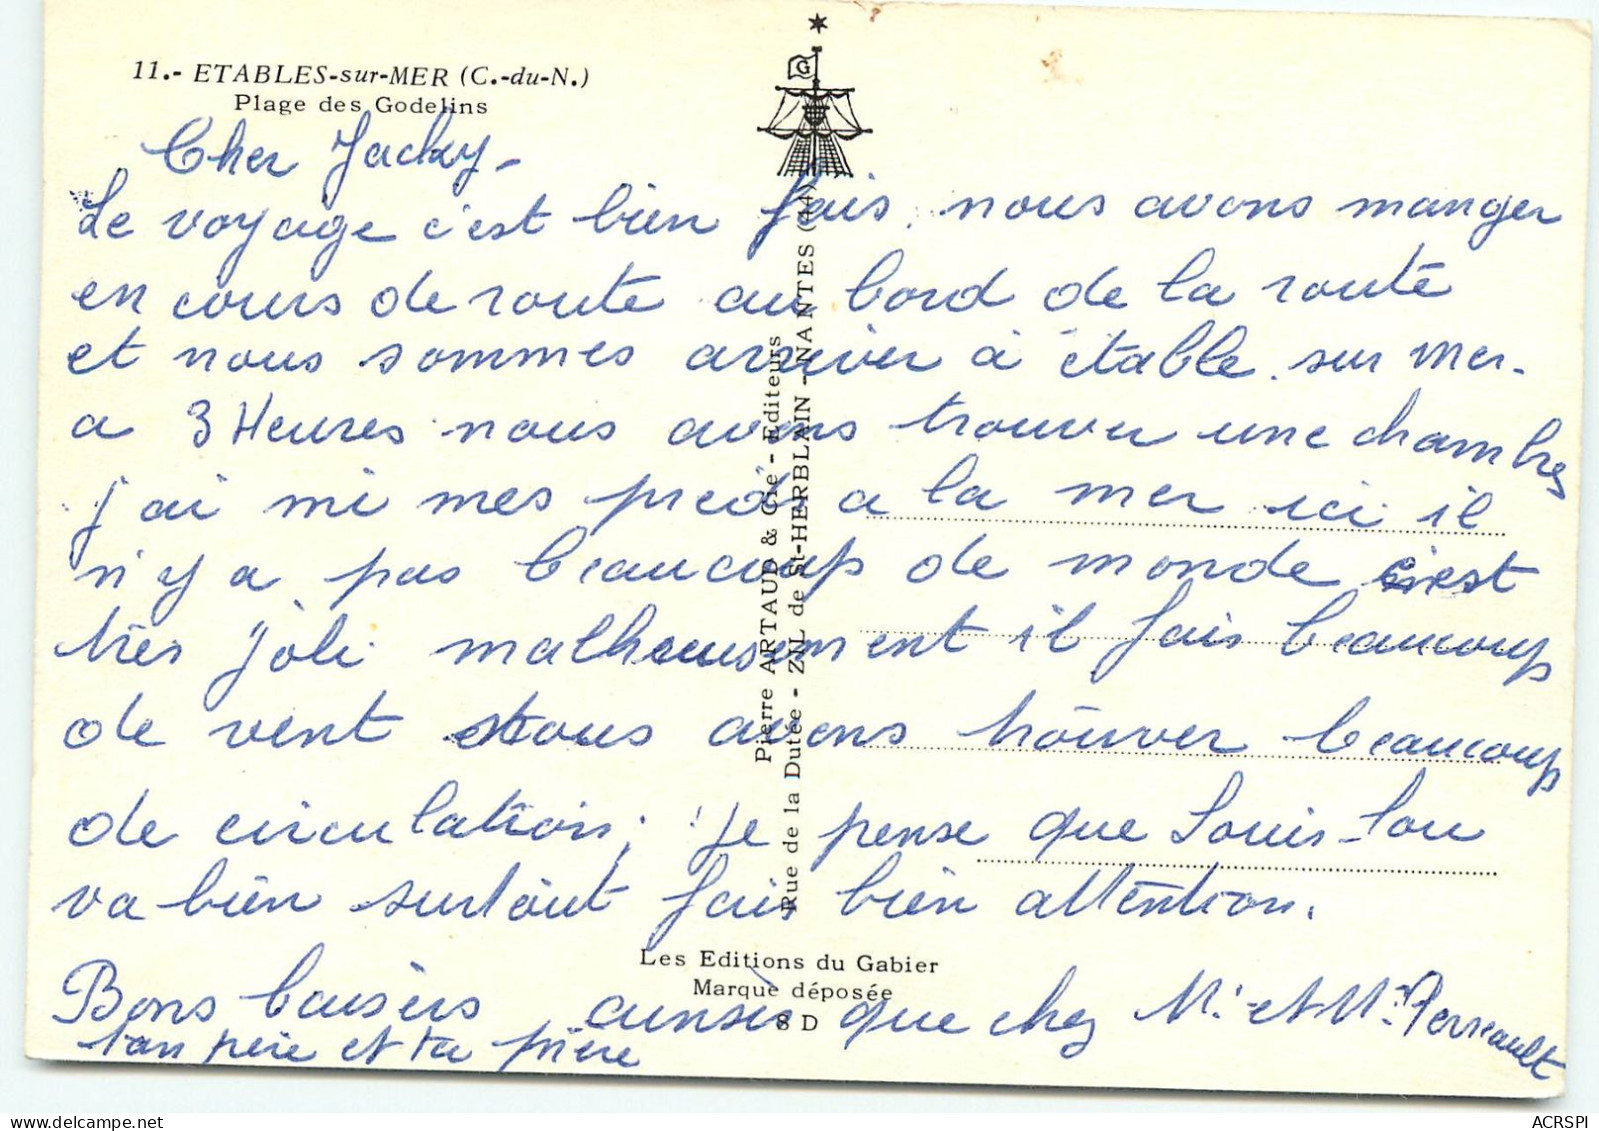 11.- ETABLES-sur-MER (C.-du-N.)
Plage des Godelins
G
Cher Jacky -
Le voyage c'est bien fais, nous avons manger
en cours de route au bord de la route
et nous sommes arriver à étable. sur Mer.
a 3 Heures nous avons trouver une chambres
j'ai mi mes pieds a la mer ici il
n'y a pas beaucoup de monde c'est
très joli malheusement il fais beaucoup
de vent nous avons trouver beaucoup
de circulation, je pense que Louis-Lou
va bien surtout fais bien attention.
Bons baisers ainsis que chez Mr. et Mm. Perreault
Ton père et ta mère
Pierre ARTAUD & Cie - Editeurs
Rue de la Dutée - ZIL de St-HERBLAIN - NANTES (44)
Les Editions du Gabier
Marque déposée
8 D
ACRSPI